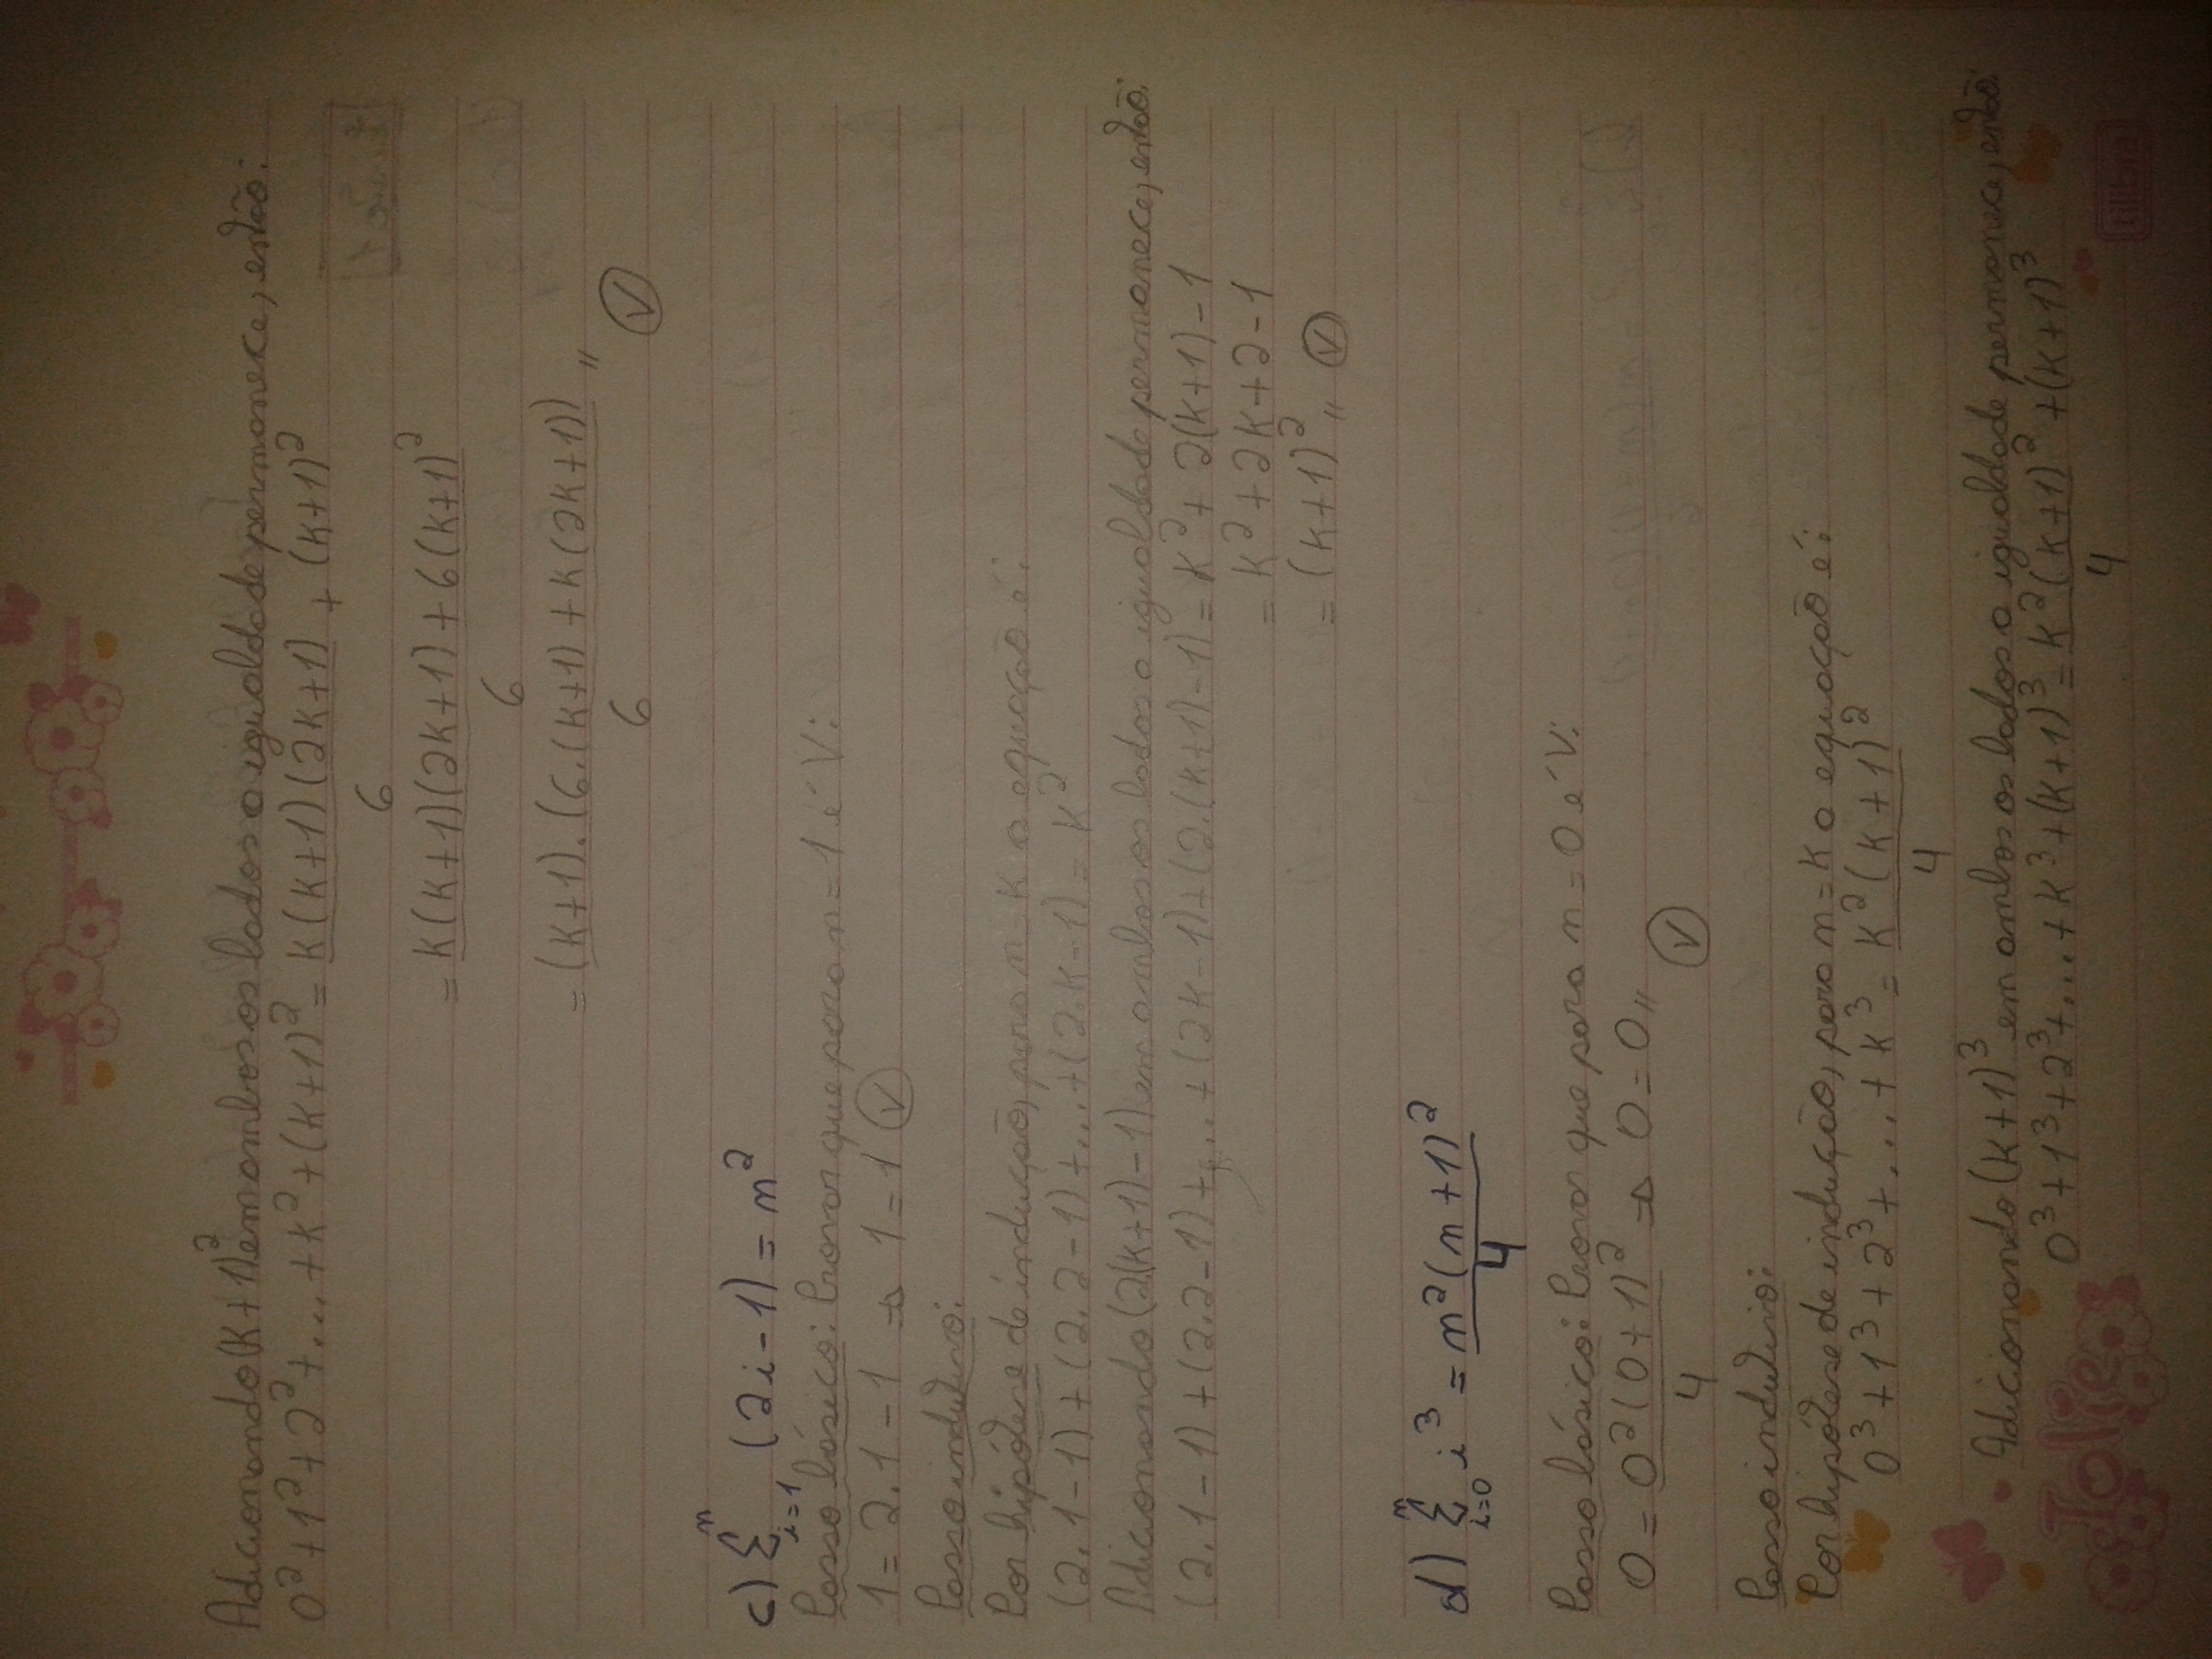 Adicionando (k+1)² em ambos os lados a igualdade permanece, então:
0²+1²+2²+...+k²+(k+1)² = k(k+1)(2k+1)/6 + (k+1)²
= k(k+1)(2k+1)+6(k+1)²/6
= (k+1).(6.(k+1)+k(2k+1))/6 〃 Ⓥ
c) Σ_{i=1}^{n} (2i-1) = n²
Passo básico: Provar que para n=1 é V:
1 = 2.1-1 ⇒ 1=1 Ⓥ
Passo indutivo:
Por hipótese de indução, para n=k a equação é:
(2.1-1)+(2.2-1)+...+(2.k-1) = k²
Adicionando (2(k+1)-1) em ambos os lados a igualdade permanece, então:
(2.1-1)+(2.2-1)+...+(2k-1)+(2.(k+1)-1) = k²+2(k+1)-1
= k²+2k+2-1
= (k+1)² 〃 Ⓥ
d) Σ_{i=0}^{n} i³ = n²(n+1)²/4
Passo básico: Provar que para n=0 é V:
0 = 0²(0+1)²/4 ⇒ 0=0 〃 Ⓥ
Passo indutivo:
Por hipótese de indução, para n=k a equação é:
0³+1³+2³+...+k³ = k²(k+1)²/4
Adicionando (k+1)³ em ambos os lados a igualdade permanece, então:
0³+1³+2³+...+k³+(k+1)³ = k²(k+1)²/4 + (k+1)³
Jolie
tilibra